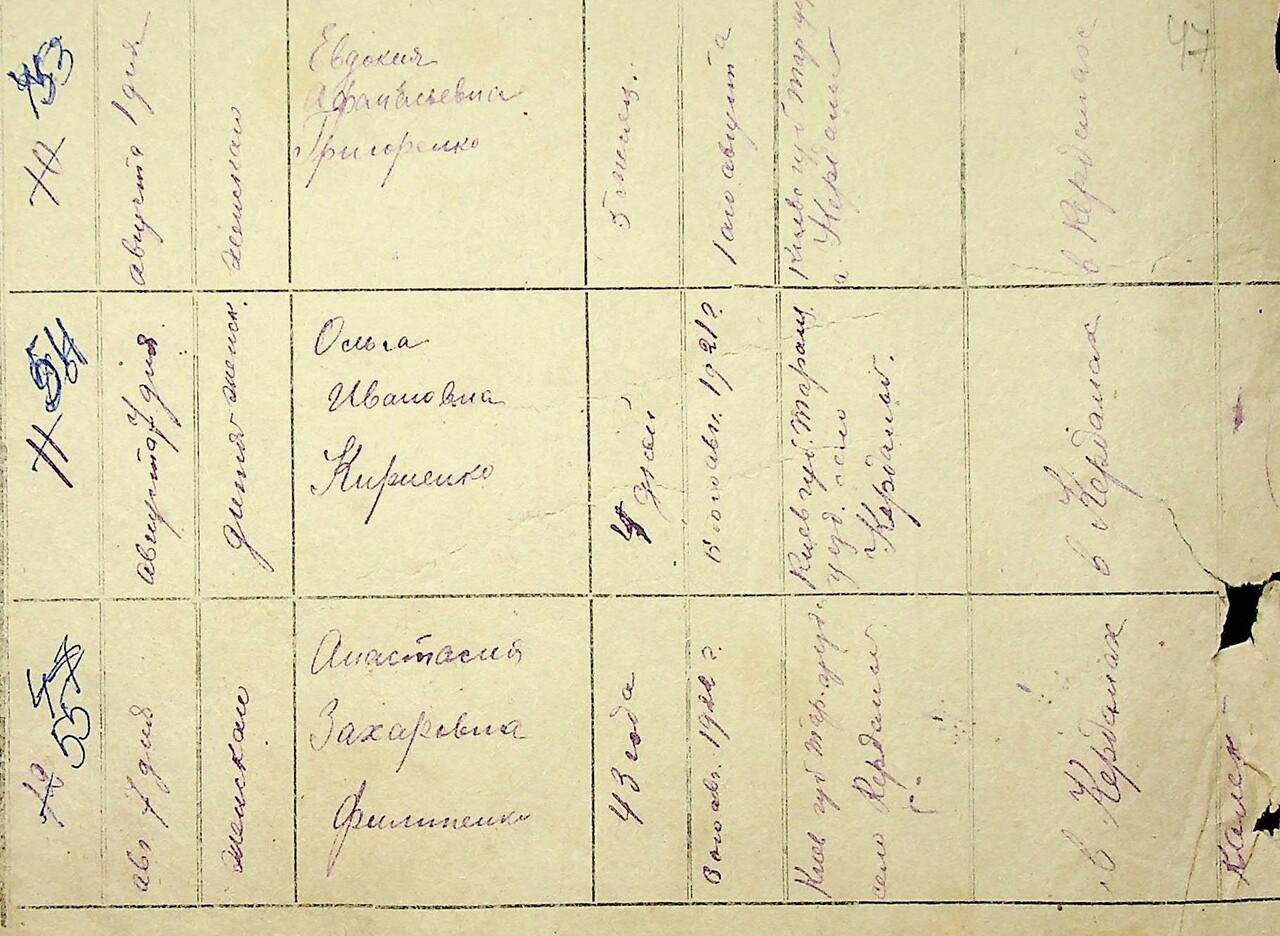 53
августа 1 дня
женская
Евдокия
Афанасьевна
Григоренко
5 месяц.
1 аго августа
Киевс губ Тар у
с. Керданы
в Керданах
47
11 54
августа 7 дня
дитя женск.
Ольга
Ивановна
Кириенко
4 дней
авг. 1921 г
Киев губ. Таращ.
уезд. село
Керданы.
в Керданах
55
авг 7 дня
женская
Анастасия
Захаровна
Филипенко
43 года
авг. 1922 г.
Киев губ Тар. уезд
село Керданы
в Керданах